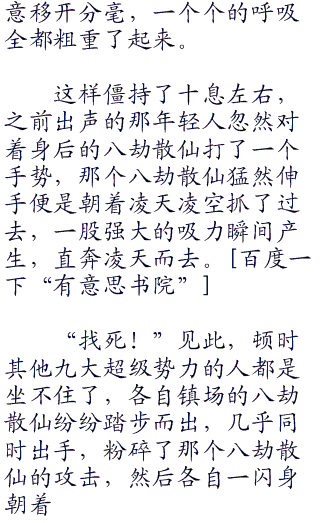 意移开分毫，一个个的呼吸
全都粗重了起来。
这样僵持了十息左右，
之前出声的那年轻人忽然对
着身后的八劫散仙打了一个
手势，那个八劫散仙猛然伸
手便是朝着凌天凌空抓了过
去，一股强大的吸力瞬间产
生，直奔凌天而去。[百度一
下“有意思书院”]
“找死！”见此，顿时
其他九大超级势力的人都是
坐不住了，各自镇场的八劫
散仙纷纷踏步而出，几乎同
时出手，粉碎了那个八劫散
仙的攻击，然后各自一闪身
朝着